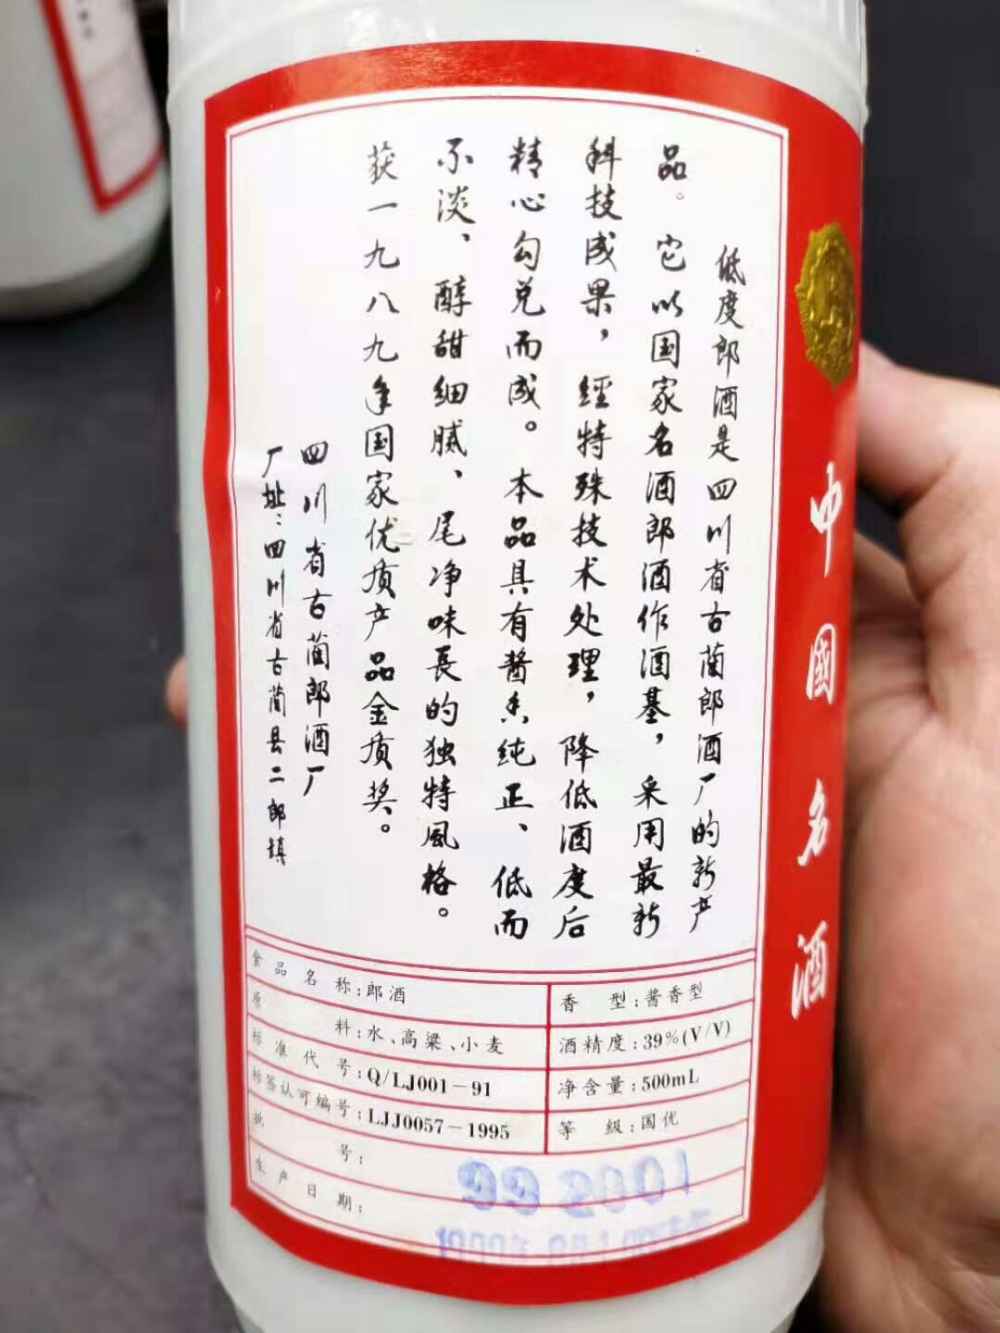 低度郎酒是四川省古蔺郎酒厂的新产
品。它以国家名酒郎酒作酒基，采用最新
科技成果，經特殊技术处理，降低酒度后
精心勾兑而成。本品具有酱香纯正、低而
不淡、醇甜细腻、尾净味長的独特風格。
获一九八九年国家优质产品金质奖。
四川省古蔺郎酒厂
厂址：四川省古蔺县二郎镇
中國名酒
食品名称：郎酒
香型：酱香型
原料：水、高粱、小麦
酒精度：39%(V/V)
标准代号：Q/LJ001－91
净含量：500mL
标签认可编号：LJJ0057－1995
等級：国优
批号：
生产日期：